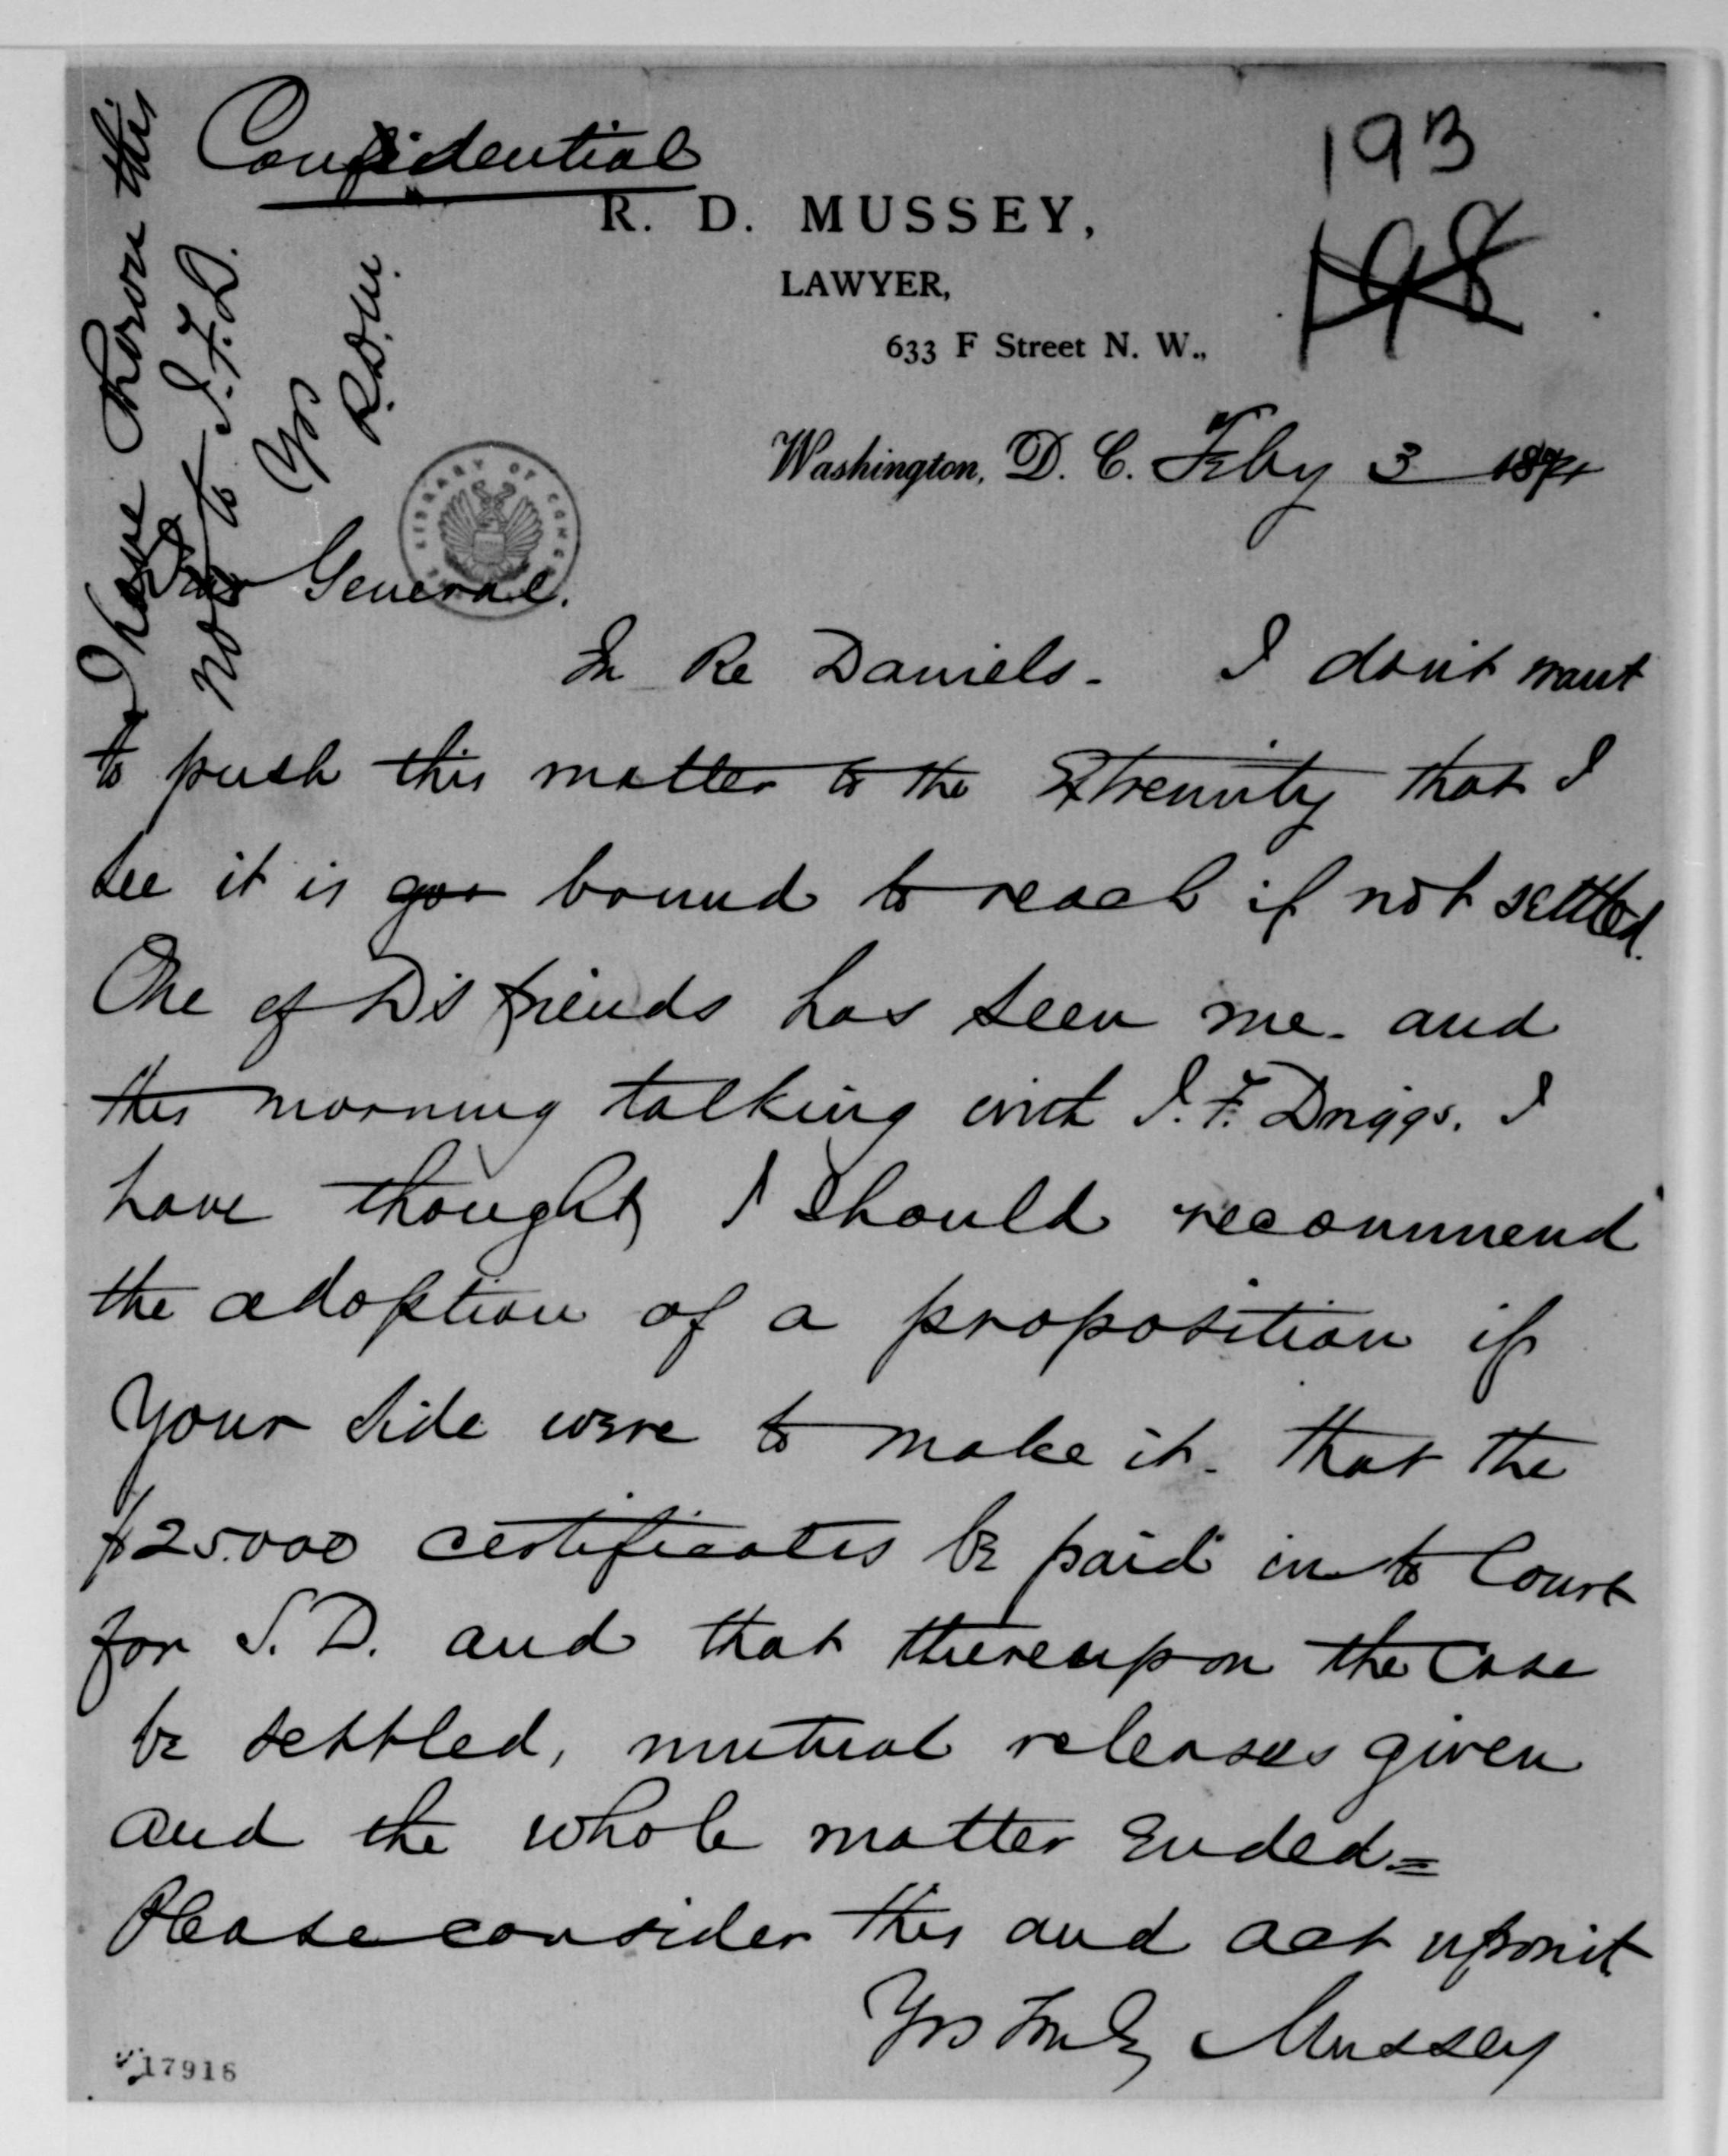 Confidential
193
198
R. D. MUSSEY,
LAWYER,
633 F Street N. W.,
Washington, D. C. Feby 3 18
Dear General.
In Re Daniels. I don't want
to push this matter to the Extremity that I
see it is goo bound to reach if not settled.
One of D's friends has seen me and
this morning talking with I. F. Driggs. I
have thought I should recommend
the adoption of a proposition if
your side were to make it. that the
$25.000 certificates be paid into Court
for S. D. and that thereupon the Case
be settled, mutual releases given
and the whole matter Ended=
Please consider this and act upon it
Yrs truly Mussey
I have shown this
not to I. F. D.
Yrs
R.D.M.
LIBRARY OF CONGRESS
17916